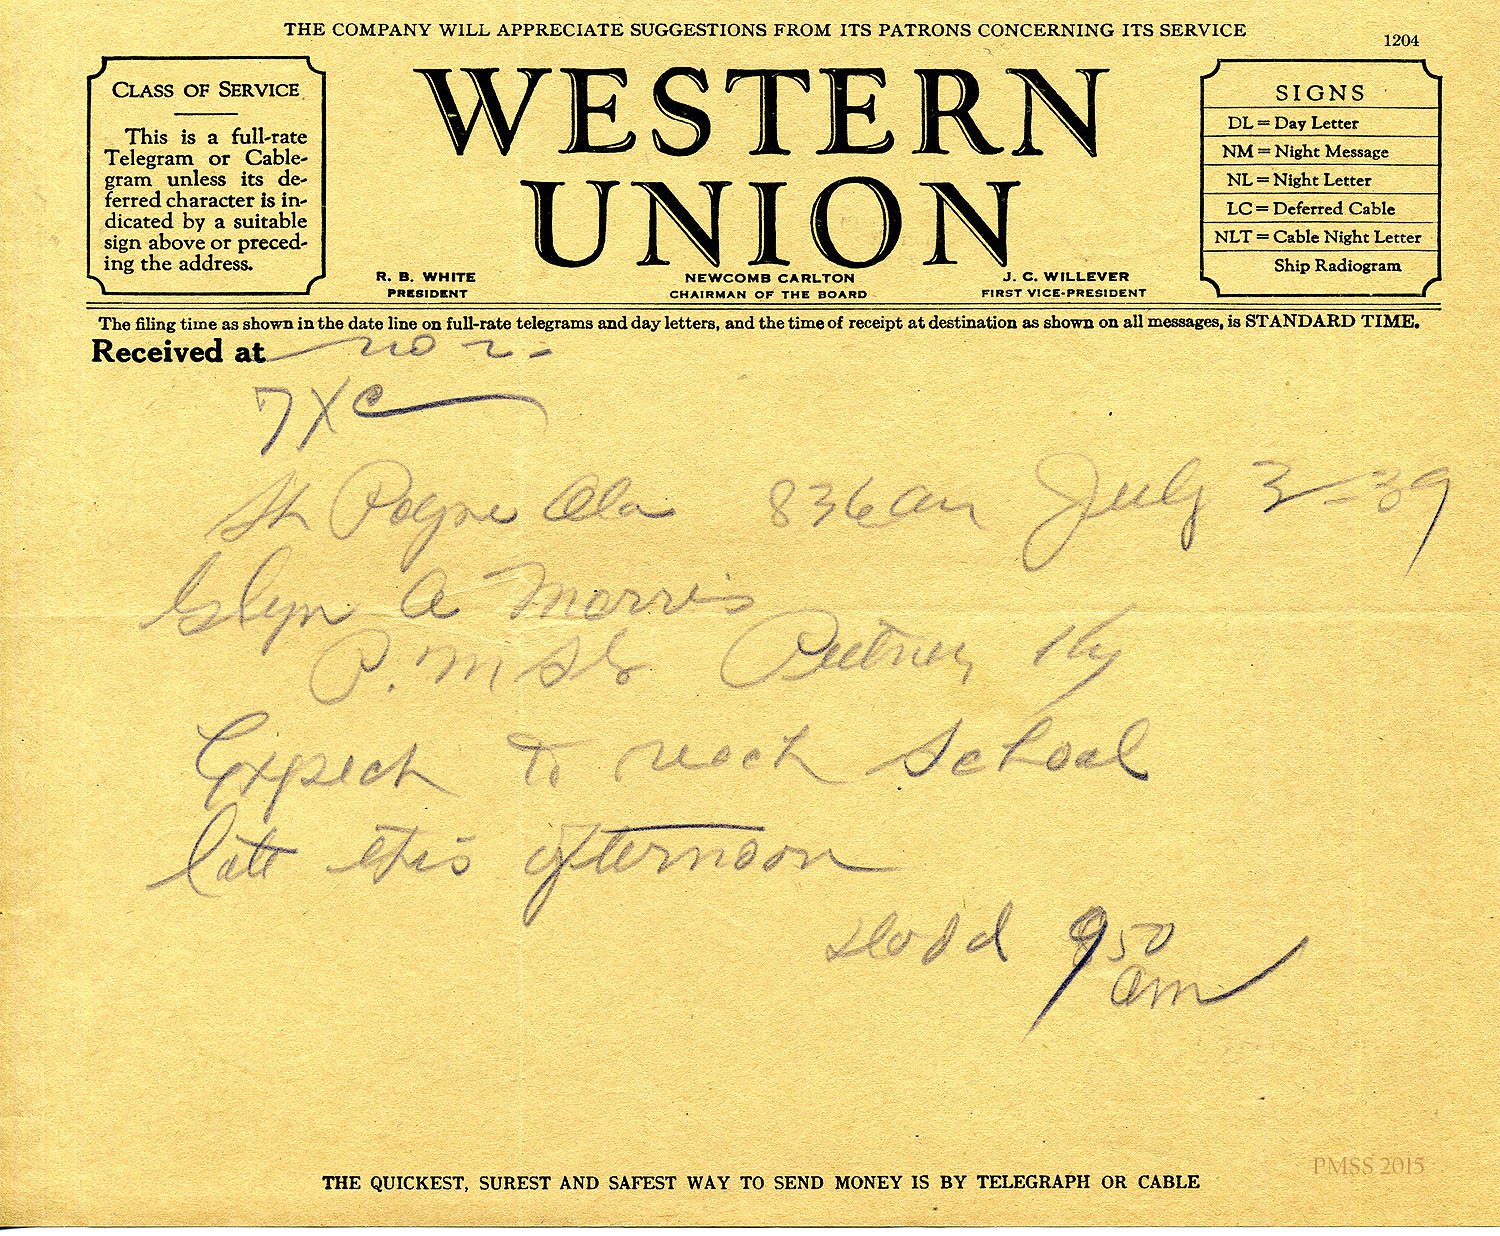 THE COMPANY WILL APPRECIATE SUGGESTIONS FROM ITS PATRONS CONCERNING ITS SERVICE
1204
CLASS OF SERVICE
This is a full-rate
Telegram or Cable-
gram unless its de-
ferred character is in-
dicated by a suitable
sign above or preced-
ing the address.
WESTERN
UNION
R. B. WHITE
PRESIDENT
NEWCOMB CARLTON
CHAIRMAN OF THE BOARD
J. C. WILLEVER
FIRST VICE-PRESIDENT
SIGNS
DL = Day Letter
NM = Night Message
NL = Night Letter
LC = Deferred Cable
NLT = Cable Night Letter
Ship Radiogram
The filing time as shown in the date line on full-rate telegrams and day letters, and the time of receipt at destination as shown on all messages, is STANDARD TIME.
Received at
7XC
Ft Payne Ala 836am July 3-39
Glyn A Morris
P.M.S. Putney Ky
Expect to reach School
late this afternoon
Dodd 950
am
PMSS 2015
THE QUICKEST, SUREST AND SAFEST WAY TO SEND MONEY IS BY TELEGRAPH OR CABLE